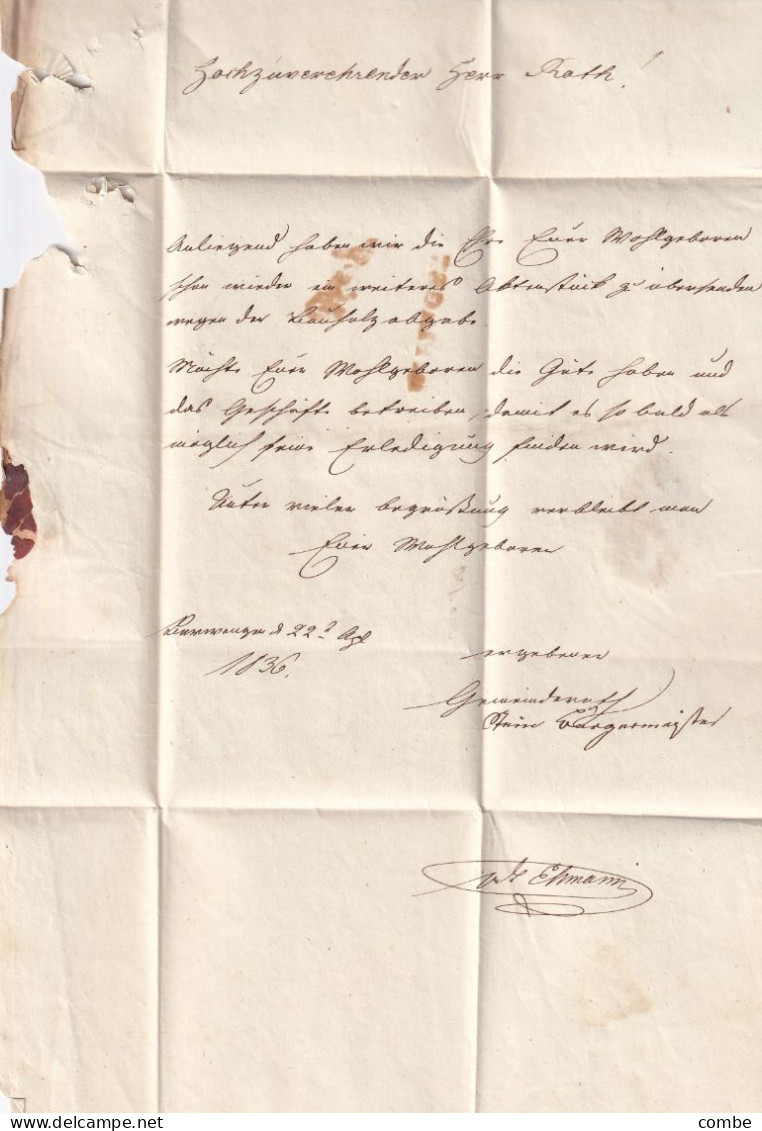 Hochzuverehrender Herr Rath!
Anliegend haben wir die Ehre Euer Wohlgeboren
schon wieder ein weiteres Aktenstück zu übersenden
wegen der Bauholzabgabe.
Möchte Euer Wohlgeboren die Güte haben und
das Geschäft betreiben, damit es so bald als
möglich seine Erledigung finden wird.
Unter vieler begrüßung verbleibt man
Euer Wohlgeboren
Berwangen d 22t Apl
1836.
ergebener
Gemeinderath
Stein Bürgermeister
vdt Ehmann
combe